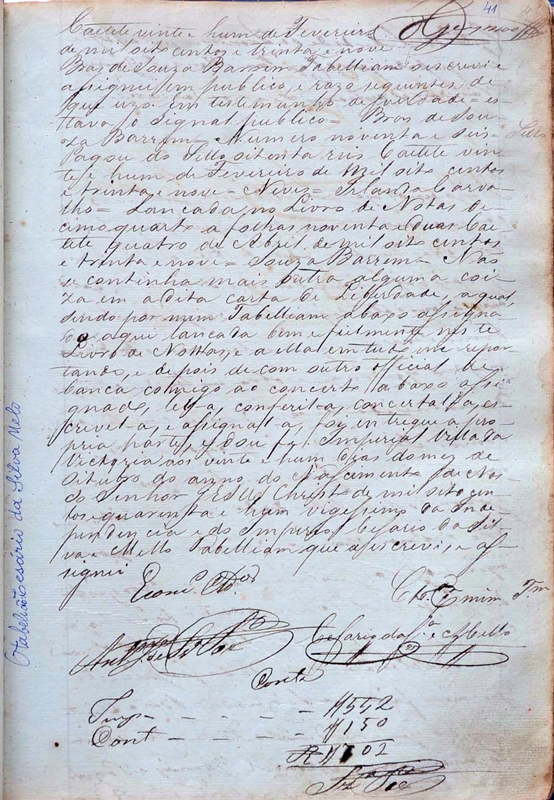 41
Caetete vinte e hum de Fevereiro
de mil oito centos e trinta e nove
Bras de Souza Barrem Tabelliam o escrevi e
assignei em publico, e razo seguintes de
que uzo em testemunho de verdade = es-
tava o signal publico = Bras de Sou-
za Barrem = Numero noventa e seis
Sello
Pagou do Sello oitenta reis Caetete vin-
te e hum de Fevereiro de Mil oito centos
e trinta e nove = Neves = Carva-
lho = Lancada no Livro de Notas de-
cimo quarto a folhas noventa e duas Cae
tete quatro de Abril de mil oito centos
e trinta e nove = Souza Barrem = Nao
se continha mais outra alguma coi-
za em a dita carta de Liberdade, a qual
sendo por mim Tabelliam abaxo assigna
do, aqui lancada bem e fielmente neste
Livro de Nottas, e a ella em tudo me repor-
tando, e depois de com outro official de-
banca comigo ao concerto abaxo asi-
gnado, ler-a, conferir-a, concertal-a, es-
crevel-a, e asignal-a, foy entregue a pro-
pria parte, e dou fé. Imperial Villa da
Victoria aos vinte e hum dias do mez de
do anno do Nascimento de Nos-
so Senhor Jesus Christo de mil oito cen
tos e quarenta e hum vigessimo da Inde-
pendencia e do Imperio Cesario da Sil-
va e Mello Tabelliam que a escrevi, e as-
signei
Tabelião Cesário da Silva Melo
E por mim Tam
Cesario da Sa e Mello
Conta
#542
Cont - - - - #150